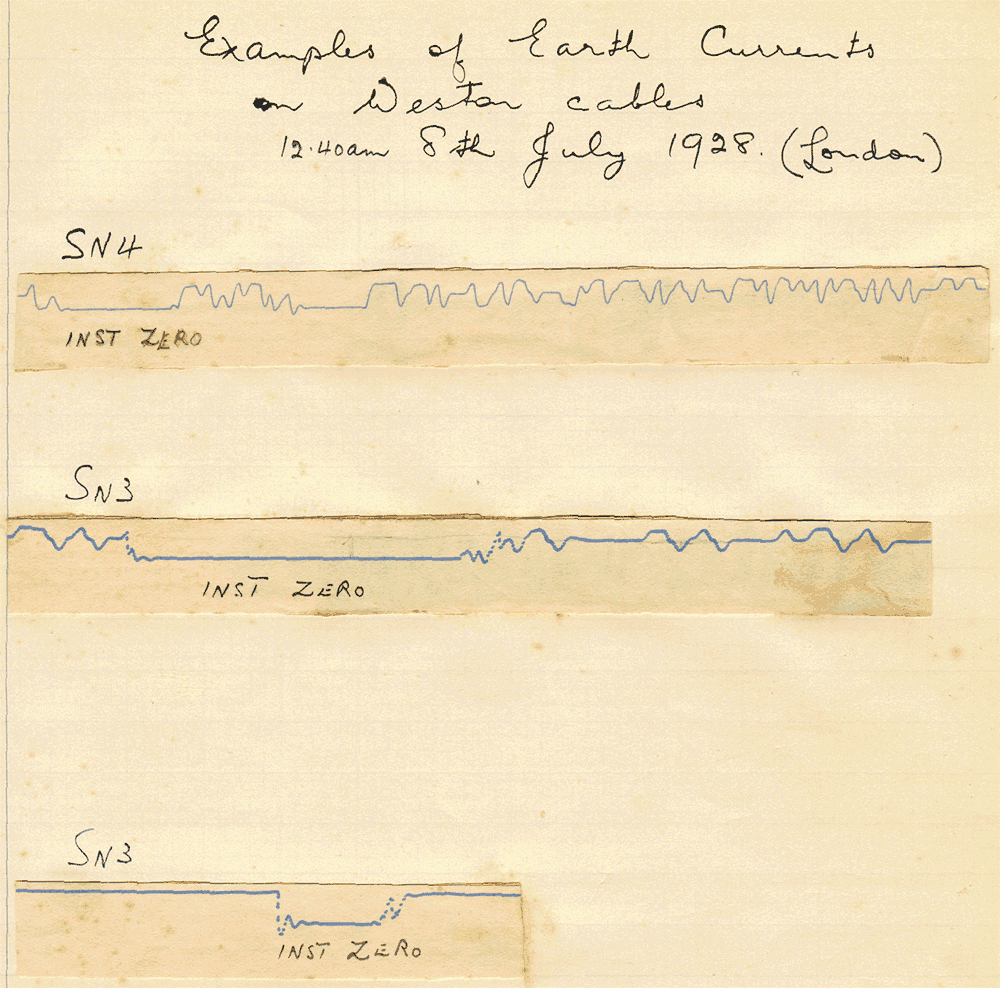 Examples of Earth Currents
on Weston cables
12.40am 8th July 1928. (London)
SN4
INST ZERO
SN3
INST ZERO
SN3
INST ZERO